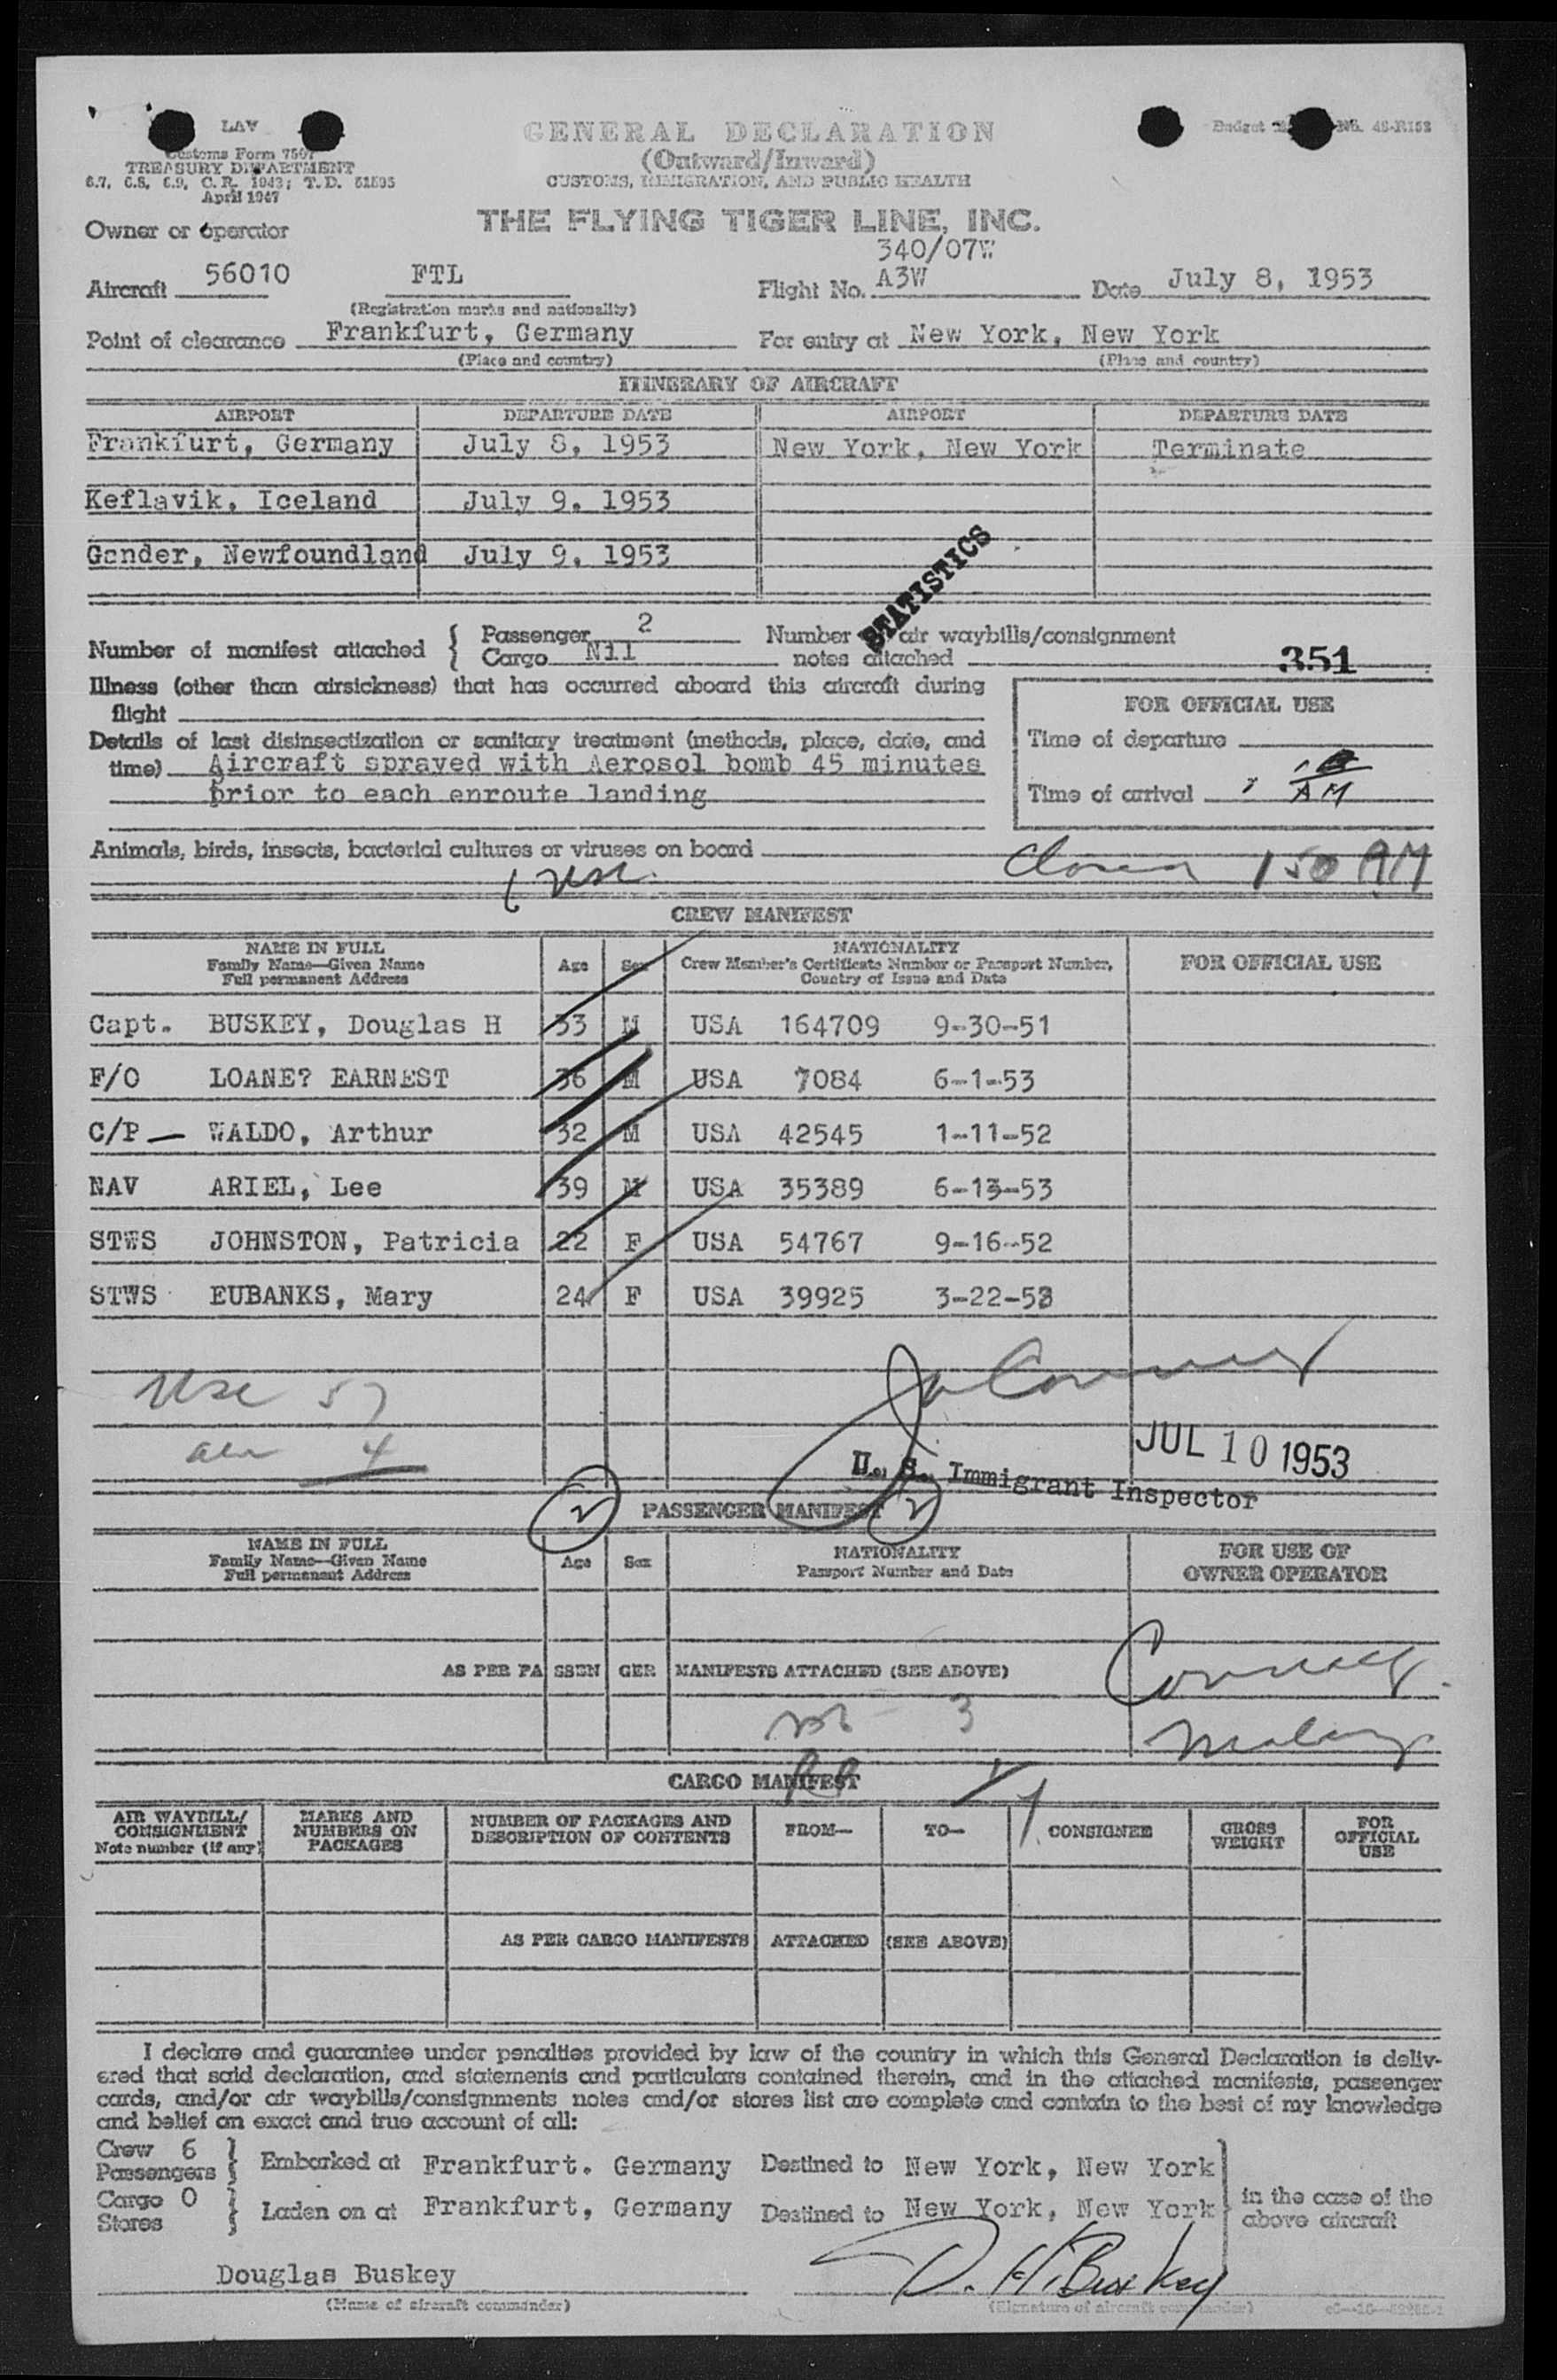 LAV
Customs Form 7507
TREASURY DEPARTMENT
6.7, 6.8, 6.9, C. R. 1943; T. D. 51595
April 1947
GENERAL DECLARATION
(Outward/Inward)
CUSTOMS, IMMIGRATION, AND PUBLIC HEALTH
Budget No. 48-R152
THE FLYING TIGER LINE, INC.
Owner or operator
340/07W
Aircraft 56010 FTL Flight No. A3W Date July 8, 1953
(Registration marks and nationality)
Point of clearance Frankfurt, Germany For entry at New York, New York
(Place and country) (Place and country)
ITINERARY OF AIRCRAFT
AIRPORT DEPARTURE DATE AIRPORT DEPARTURE DATE
Frankfurt, Germany July 8, 1953 New York, New York Terminate
Keflavik, Iceland July 9, 1953
Gander, Newfoundland July 9, 1953
STATISTICS
Number of manifest attached { Passenger 2 Number air waybills/consignment
Cargo Nil notes attached
351
Illness (other than airsickness) that has occurred aboard this aircraft during
flight
FOR OFFICIAL USE
Details of last disinsectization or sanitary treatment (methods, place, date, and
time) Aircraft sprayed with Aerosol bomb 45 minutes
prior to each enroute landing
Time of departure
Time of arrival AM
Animals, birds, insects, bacterial cultures or viruses on board
150 AM
CREW MANIFEST
NAME IN FULL
Family Name—Given Name
Full permanent Address
Age Sex
NATIONALITY
Crew Member's Certificate Number or Passport Number,
Country of Issue and Date
FOR OFFICIAL USE
Capt. BUSKEY, Douglas H 33 M USA 164709 9-30-51
F/O LOANE? EARNEST 36 M USA 7084 6-1-53
C/P — WALDO, Arthur 32 M USA 42545 1-11-52
NAV ARIEL, Lee 39 M USA 35389 6-13-53
STWS JOHNSTON, Patricia 22 F USA 54767 9-16-52
STWS EUBANKS, Mary 24 F USA 39925 3-22-53
57
4
JUL 10 1953
U. S. Immigrant Inspector
2 PASSENGER MANIFEST 2
NAME IN FULL
Family Name—Given Name
Full permanent Address
Age Sex
NATIONALITY
Passport Number and Date
FOR USE OF
OWNER OPERATOR
AS PER PASSENGER MANIFESTS ATTACHED (SEE ABOVE)
3
CARGO MANIFEST
AIR WAYBILL/
CONSIGNMENT
Note number (if any)
MARKS AND
NUMBERS ON
PACKAGES
NUMBER OF PACKAGES AND
DESCRIPTION OF CONTENTS
FROM— TO— CONSIGNEE
GROSS
WEIGHT
FOR
OFFICIAL
USE
AS PER CARGO MANIFESTS ATTACHED (SEE ABOVE)
I declare and guarantee under penalties provided by law of the country in which this General Declaration is deliv-
ered that said declaration, and statements and particulars contained therein, and in the attached manifests, passenger
cards, and/or air waybills/consignments notes and/or stores list are complete and contain to the best of my knowledge
and belief an exact and true account of all:
Crew 6
Passengers } Embarked at Frankfurt. Germany Destined to New York, New York
Cargo 0
Stores } Laden on at Frankfurt, Germany Destined to New York, New York
in the case of the
above aircraft
Douglas Buskey D. H. Buskey
(Name of aircraft commander) (Signature of aircraft commander)